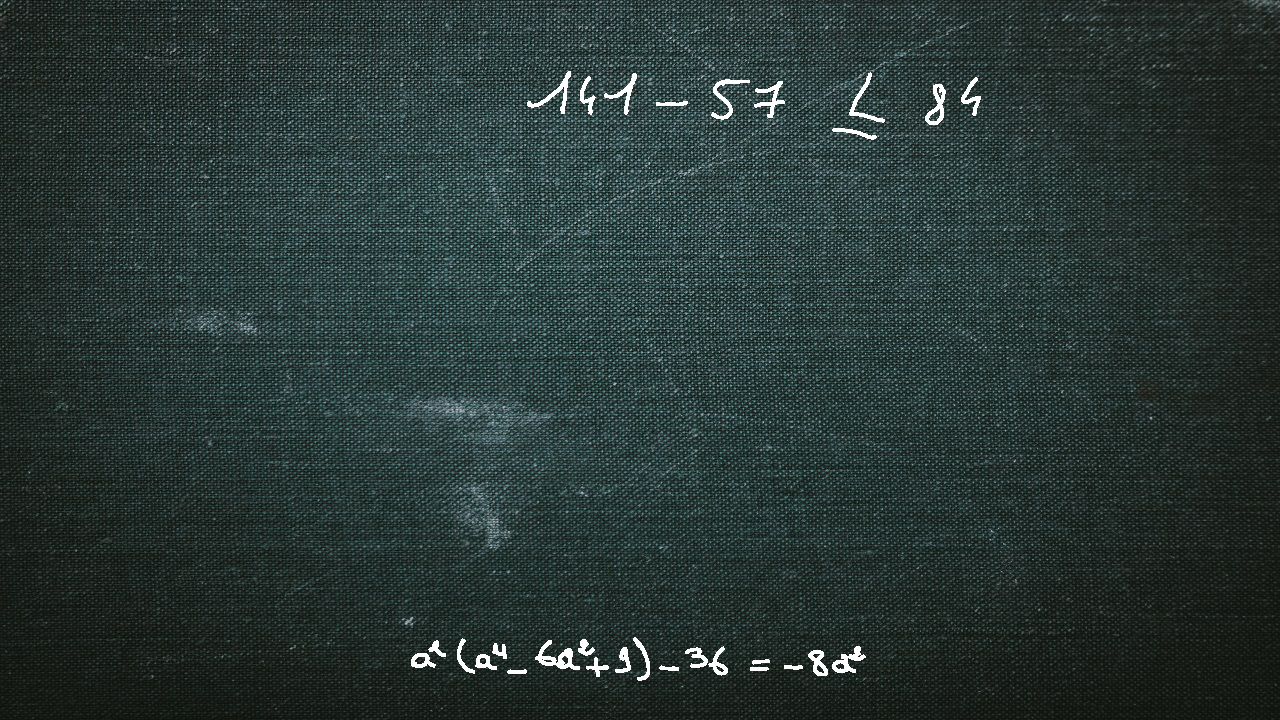 141 - 57 ≤ 84
a² (a⁴ - 6a² + 1) - 36 = -8a²